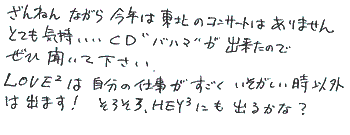 ざんねん ながら 今年は 東北 のコンサートは ありません
とても 気持ちいい CD"バハマ"が 出来たので
ぜひ 聞いて下さい.
LOVE²は 自分の仕事が すごく いそがしい時以外
は出ます! そろそろ、HEY³にも 出るかな?